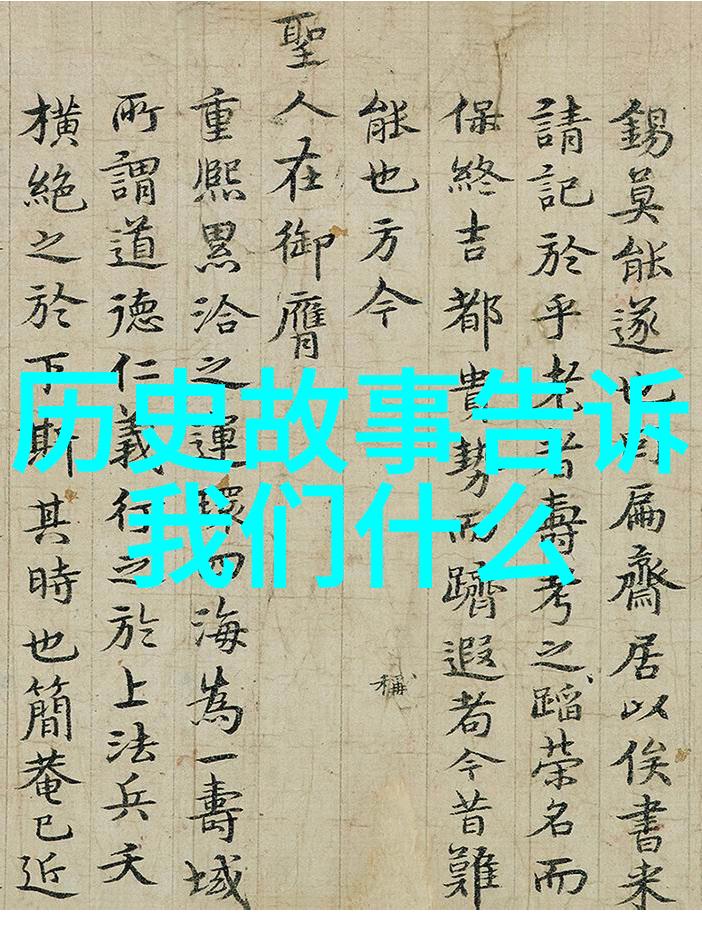 历史故事告诉
我们什么
錫莫能遂也扁齋居以俟書来
請記於乎老者壽考之蹈榮名而
保終吉都貴勢而躋遐耇今昔難
能也方今
稱
聖人在御膺
重熙累洽之運環四海為一壽域
所謂道德仁義行之於上法兵夭
橫絶之於下斯其時也簡菴已近